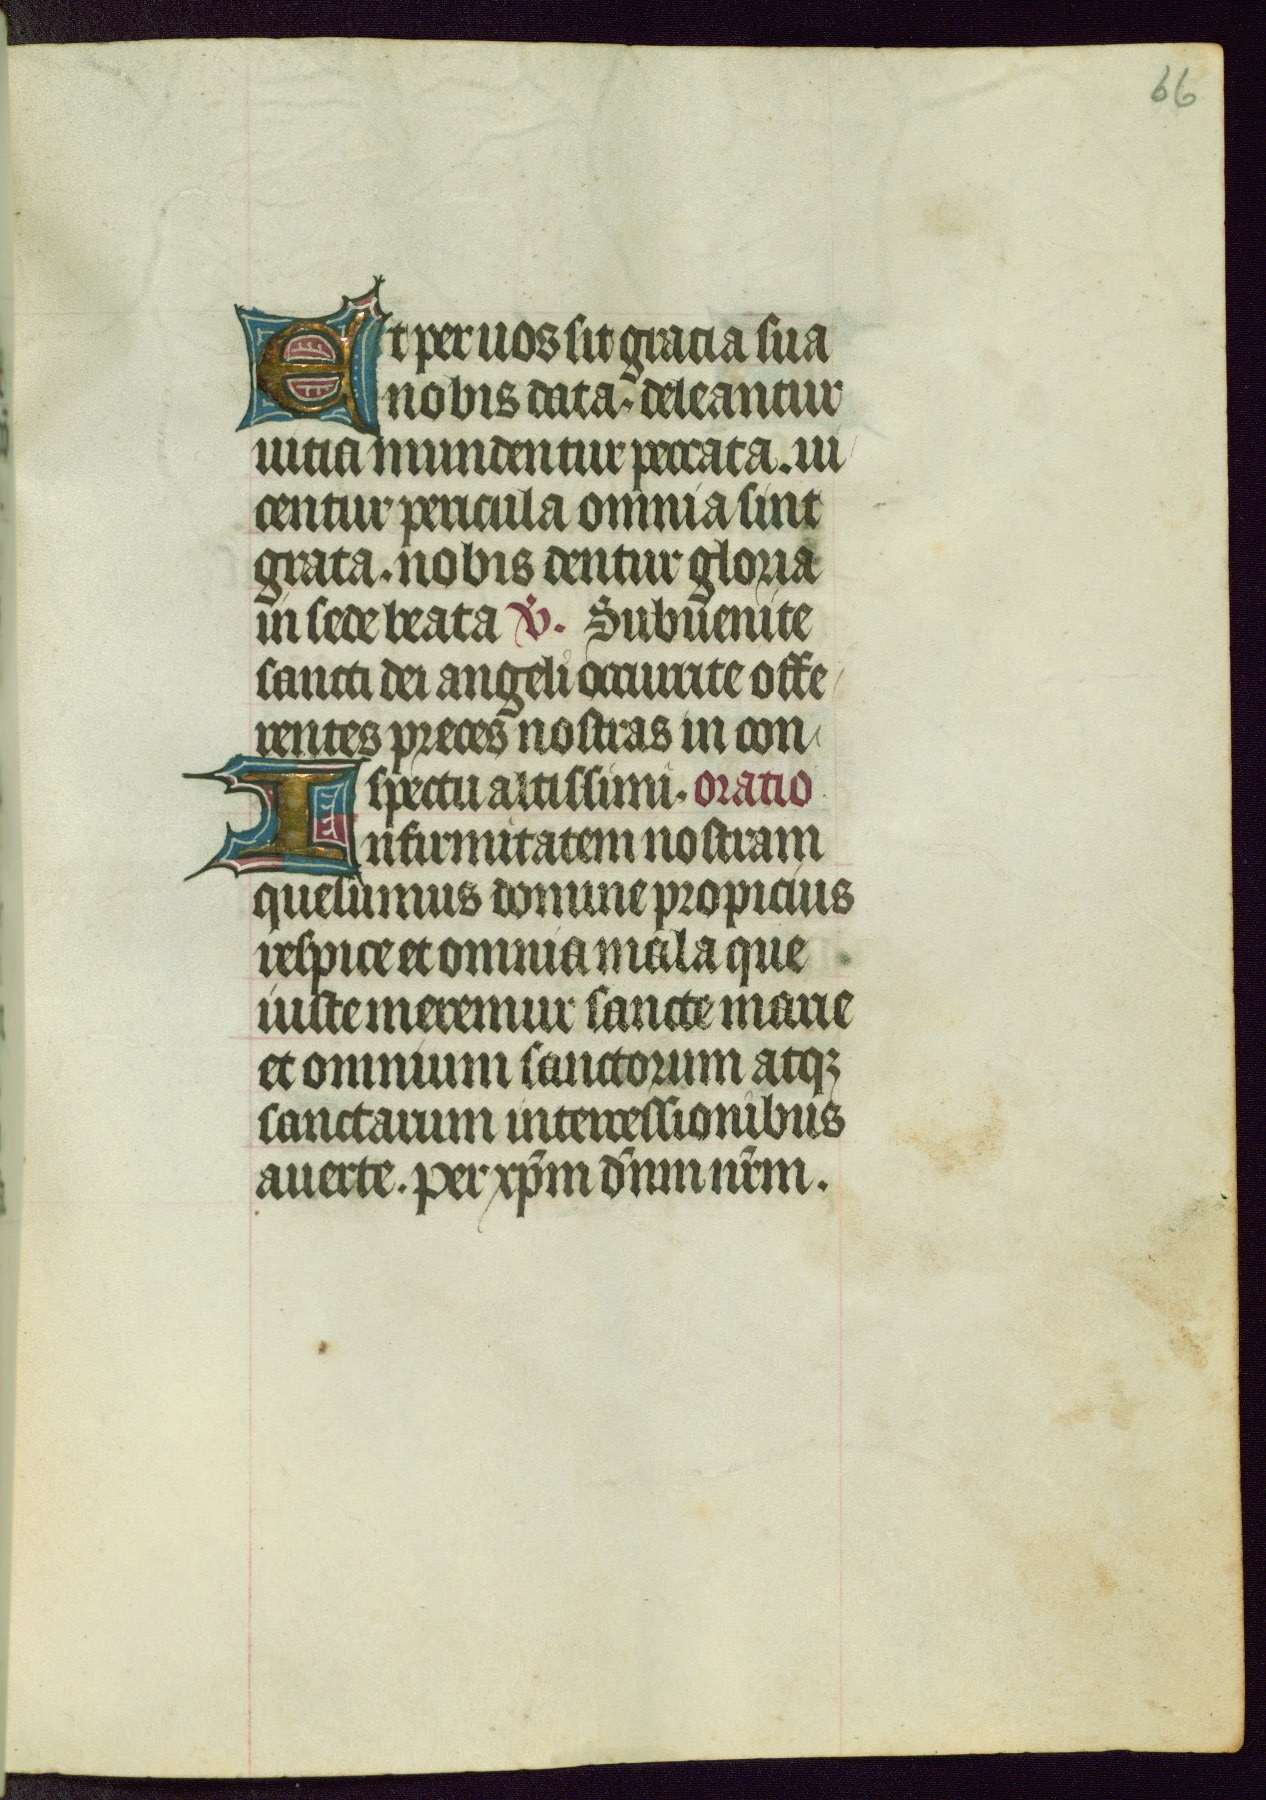 66
Et per uos sit gracia sua
nobis data. deleantur
uitia mundentur peccata. ui
centur pericula omnia sint
grata. nobis dentur gloria
in sede beata V̇. Subuenite
sancti dei angeli occurrite offe
rentes preces nostras in con
spectu altissimi. oratio
Infirmitatem nostram
quesumus domine propicius
respice et omnia mala que
iuste meremur sancte marie
et omnium sanctorum atqꝫ
sanctarum intercessionibus
auerte. per xp̄m dn̄m nr̄m.